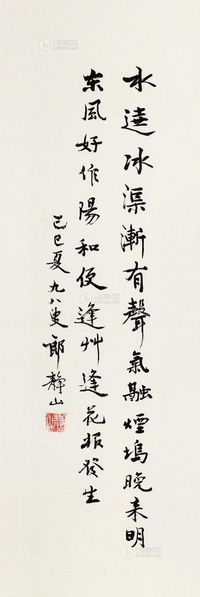 水逵冰渠漸有聲氣融煙塢晚來明
东風好作陽和使逢艸逢花報發生
己巳夏九八叟郎靜山